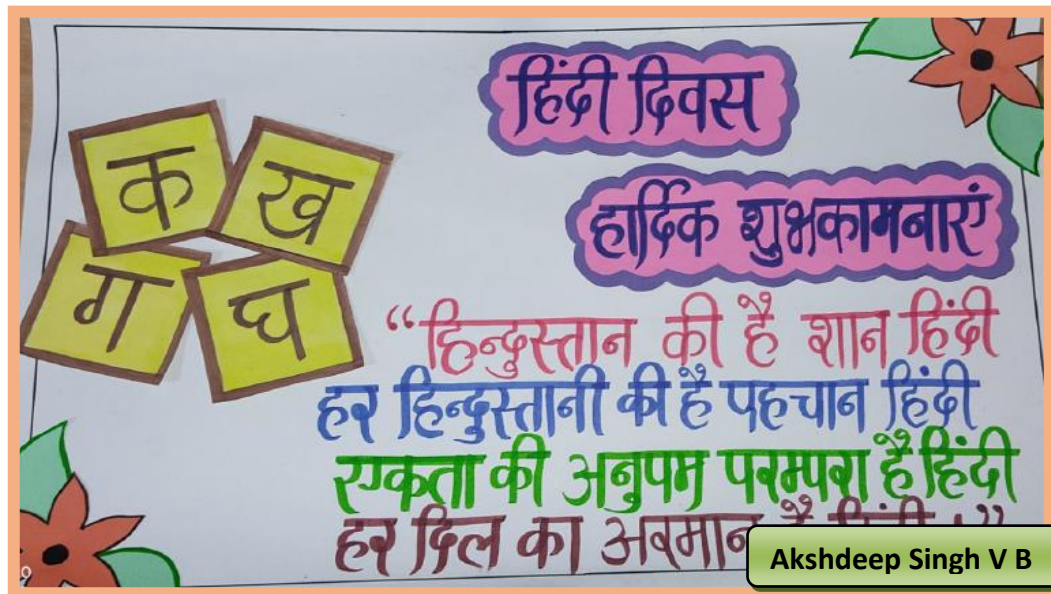 हिंदी दिवस
हार्दिक शुभकामनाएं
क ख
ग घ
“हिन्दुस्तान की है शान हिंदी
हर हिन्दुस्तानी की है पहचान हिंदी
एकता की अनुपम परम्परा है हिंदी
हर दिल का अरमान है
Akshdeep Singh V B